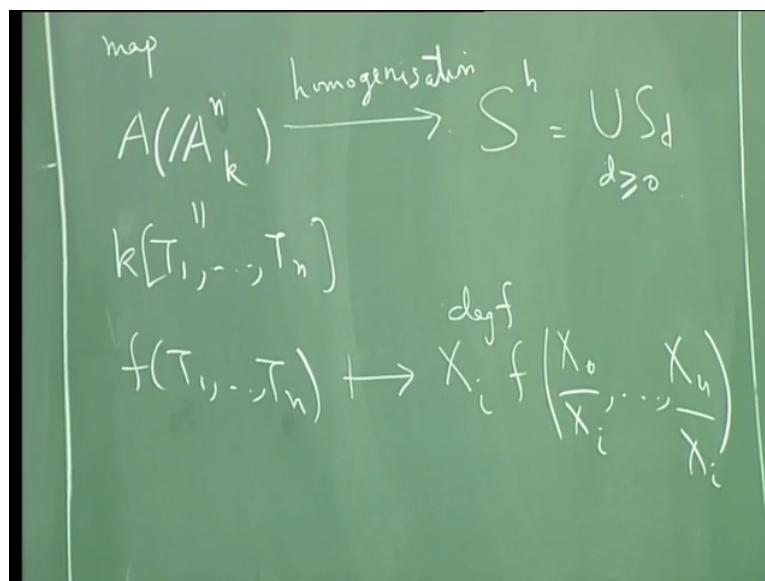 map
A(𝔸ⁿₖ) —homogenisation→ Sʰ = ∪ S_d
d≥0
||
k[T₁,...,Tₙ]
f(T₁,...,Tₙ) ↦ Xᵢ^{deg f} f(X₀/Xᵢ,...,Xₙ/Xᵢ)